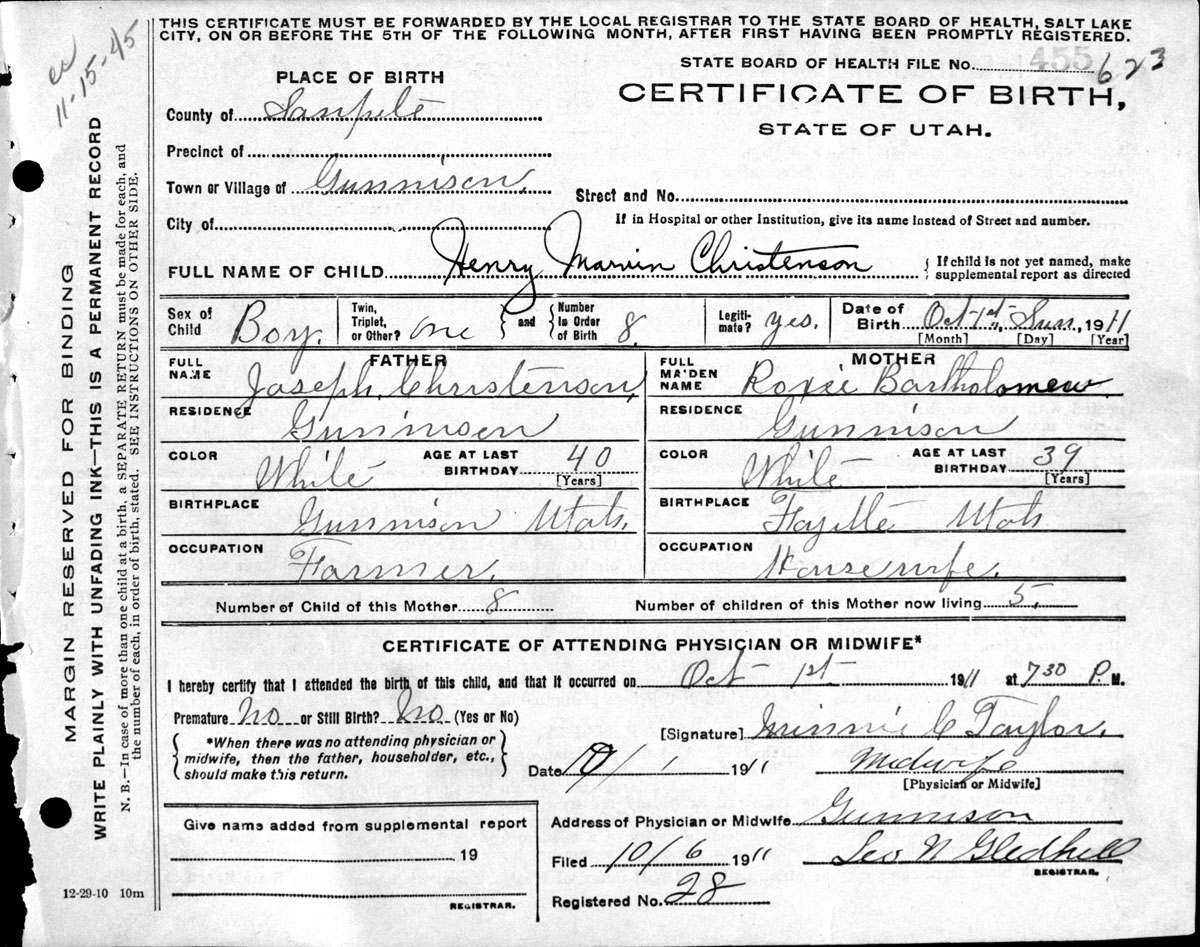 THIS CERTIFICATE MUST BE FORWARDED BY THE LOCAL REGISTRAR TO THE STATE BOARD OF HEALTH, SALT LAKE
CITY, ON OR BEFORE THE 5TH OF THE FOLLOWING MONTH, AFTER FIRST HAVING BEEN PROMPTLY REGISTERED.
11-15-45
MARGIN RESERVED FOR BINDING
WRITE PLAINLY WITH UNFADING INK—THIS IS A PERMANENT RECORD
N. B.—In case of more than one child at a birth, a SEPARATE RETURN must be made for each, and
the number of each, in order of birth, stated. SEE INSTRUCTIONS ON OTHER SIDE.
PLACE OF BIRTH
STATE BOARD OF HEALTH FILE No. 455 623
County of Sanpete
CERTIFICATE OF BIRTH,
STATE OF UTAH.
Precinct of
Town or Village of Gunnison.
Street and No.
City of
If in Hospital or other Institution, give its name instead of Street and number.
FULL NAME OF CHILD Henry Marvin Christenson { If child is not yet named, make
supplemental report as directed
Sex of Child Boy. Twin, Triplet, or Other? one } and { Number In Order of Birth 8. Legitimate? yes. Date of Birth Oct-1st-, Sun, 1911
[Month] [Day] [Year]
FATHER
FULL NAME Joseph Christenson,
RESIDENCE Gunnison
COLOR White AGE AT LAST BIRTHDAY 40 [Years]
BIRTHPLACE Gunnison Utah.
OCCUPATION Farmer.
MOTHER
FULL MAIDEN NAME Roxie Bartholomew.
RESIDENCE Gunnison
COLOR White AGE AT LAST BIRTHDAY 39 [Years]
BIRTHPLACE Fayette Utah
OCCUPATION Housewife.
Number of Child of this Mother 8 Number of children of this Mother now living 5.
CERTIFICATE OF ATTENDING PHYSICIAN OR MIDWIFE*
I hereby certify that I attended the birth of this child, and that it occurred on Oct- 1st- 1911 at 730 P. M.
Premature No or Still Birth? No (Yes or No)
[Signature] Minnie C Taylor.
{ *When there was no attending physician or
midwife, then the father, householder, etc.,
should make this return. }
Date 10/1 1911 Midwife
[Physician or Midwife]
Give name added from supplemental report
19
REGISTRAR.
12-29-10 10m
Address of Physician or Midwife Gunnison
Filed 10/6 1911 Leo N Gledhill
REGISTRAR.
Registered No. 28